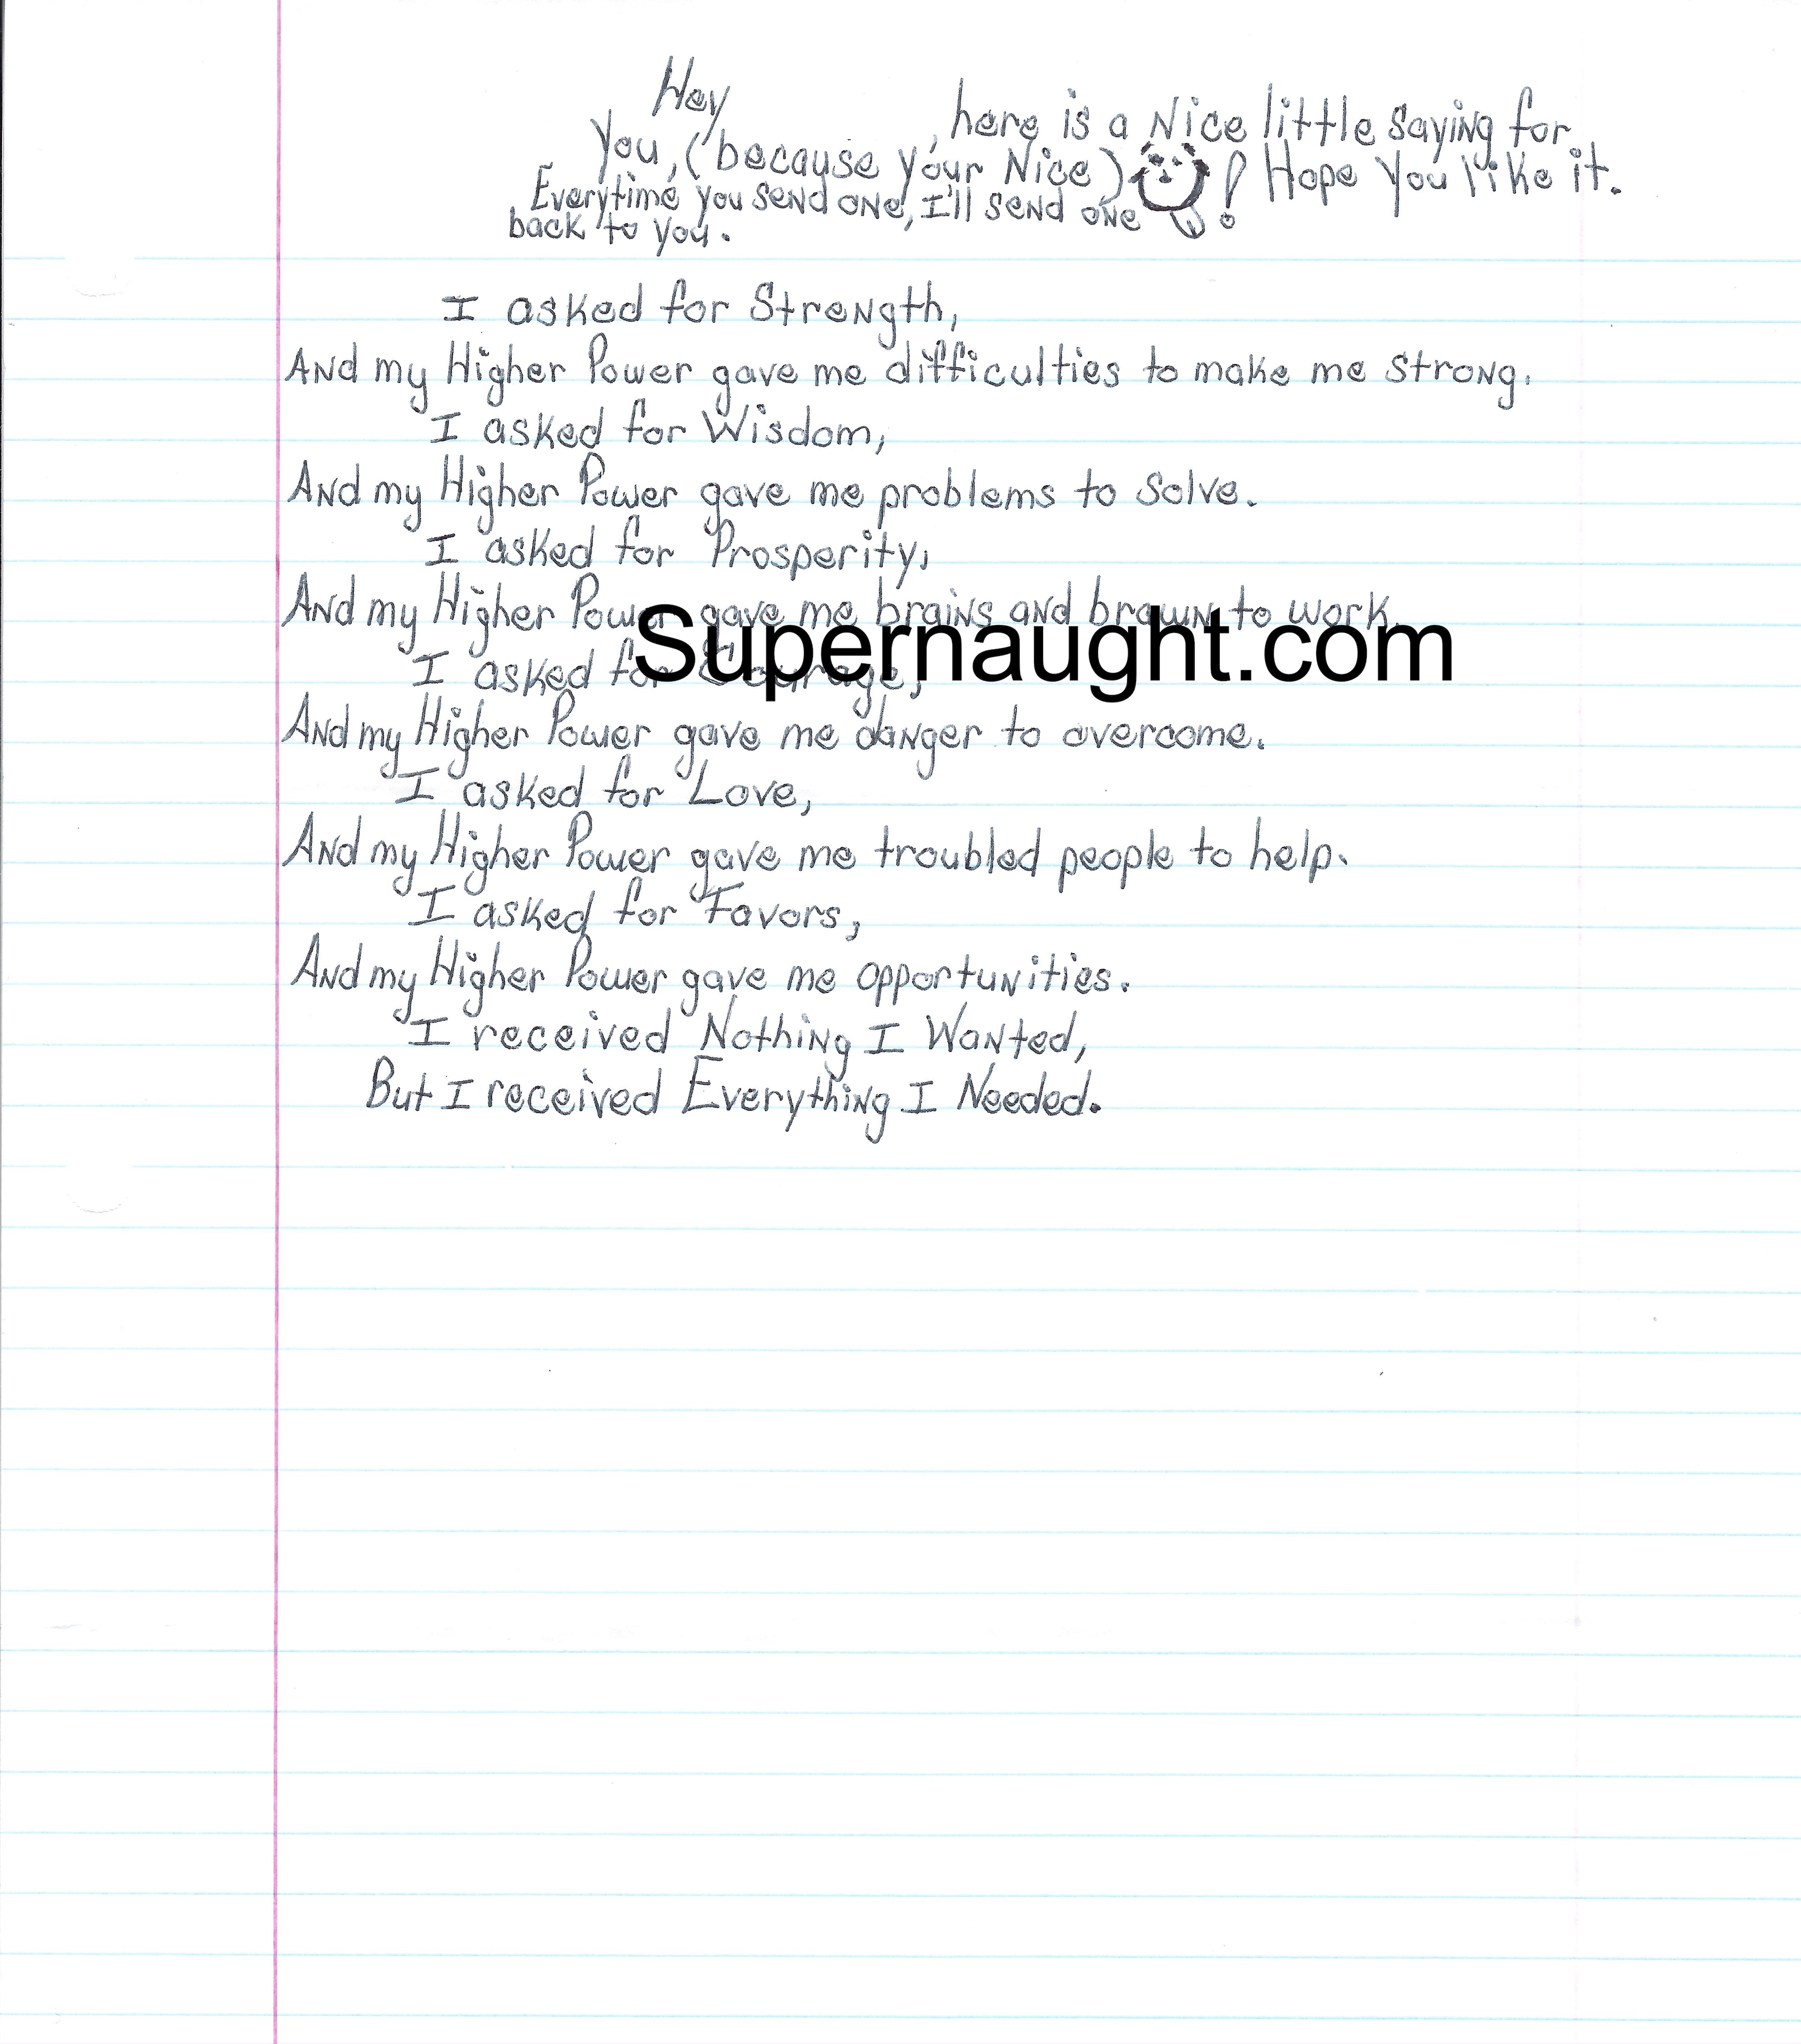 Hey , here is a Nice little saying for
You, (because your Nice) ! Hope You like it.
Everytime you send one, I'll send one
back to you.
I asked for Strength,
And my Higher Power gave me difficulties to make me strong.
I asked for Wisdom,
And my Higher Power gave me problems to solve.
I asked for Prosperity,
And my Higher Power gave me brains and brawn to work.
Supernaught.com
I asked for Courage,
And my Higher Power gave me danger to overcome.
I asked for Love,
And my Higher Power gave me troubled people to help.
I asked for Favors,
And my Higher Power gave me opportunities.
I received Nothing I Wanted,
But I received Everything I Needed.